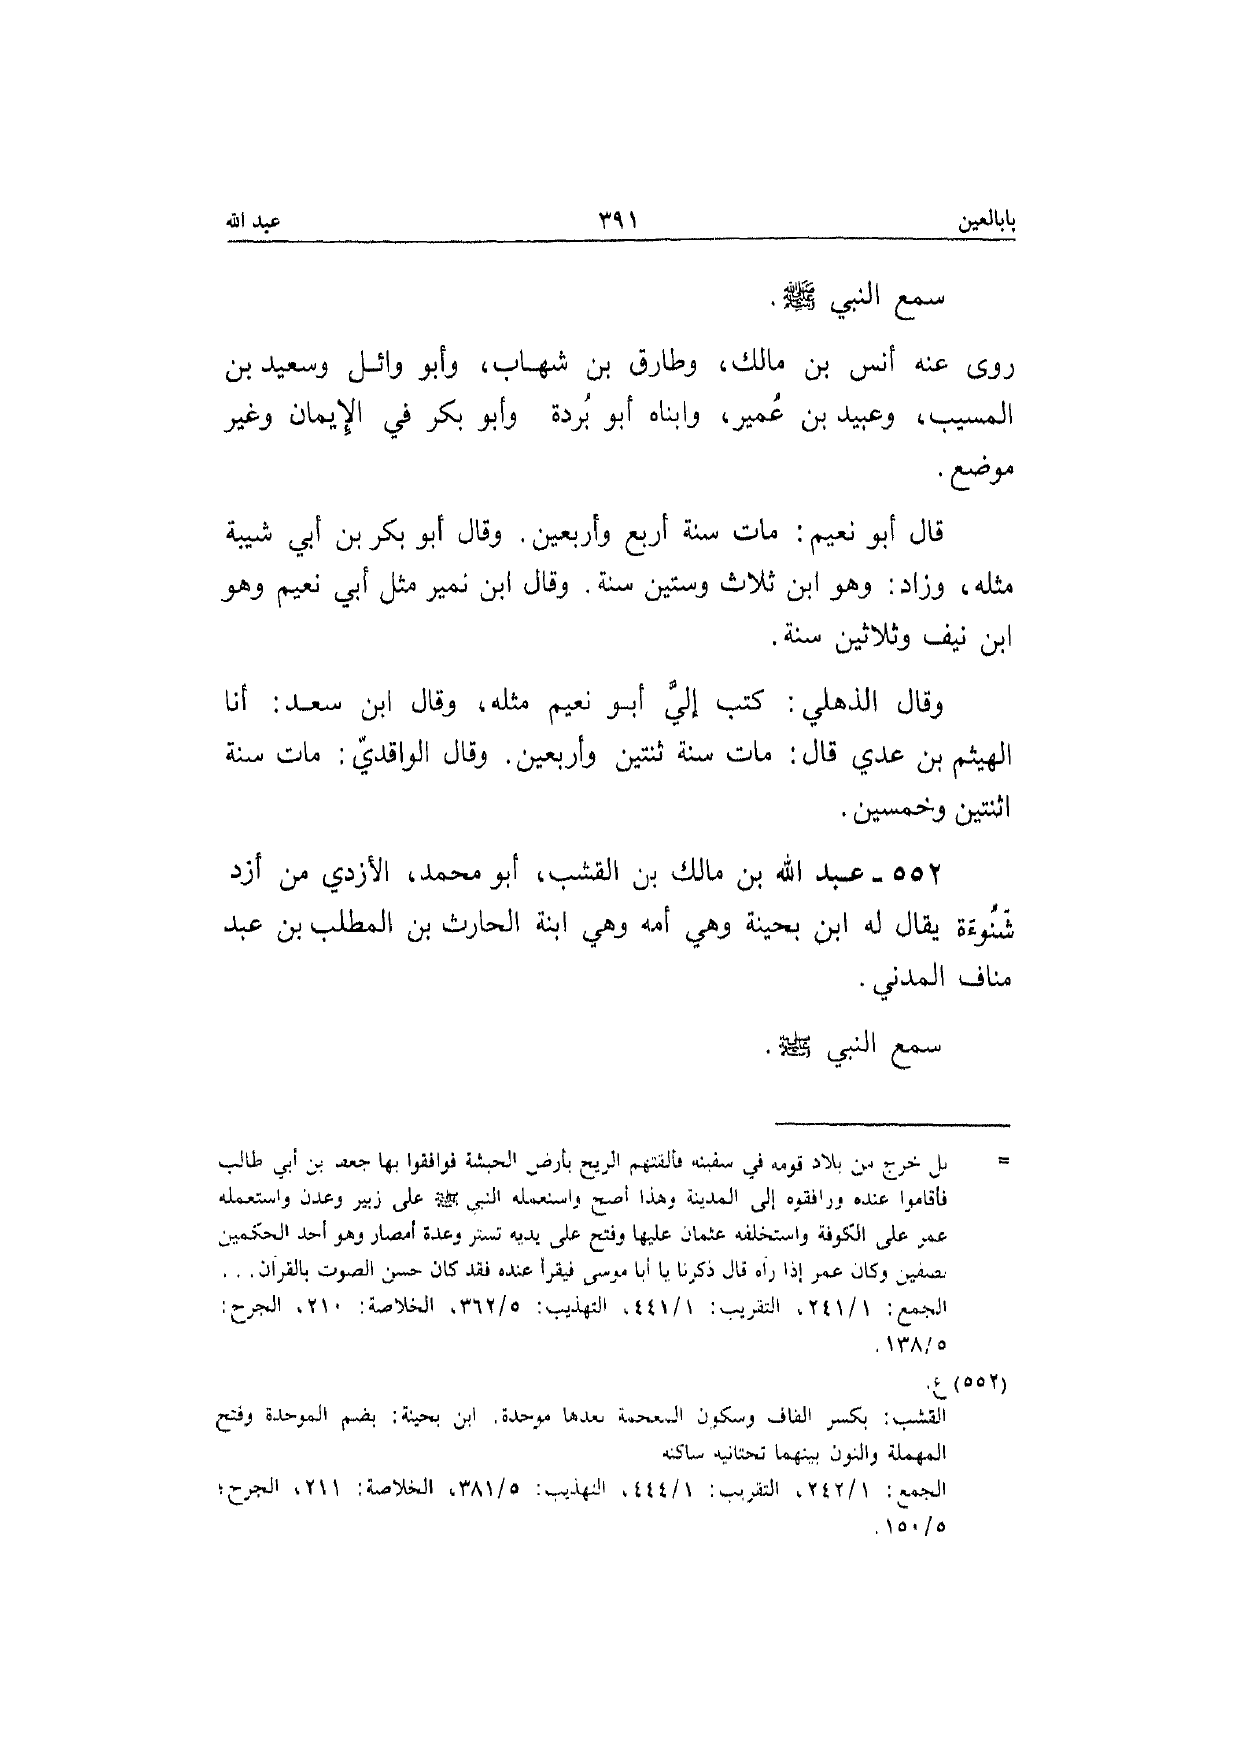 بابالعين ٣٩١ عبد الله
سمع النبي ﷺ.
روى عنه أنس بن مالك، وطارق بن شهاب، وأبو وائل وسعيد بن
المسيب، وعبيد بن عُمير، وابناه أبو بُردة وأبو بكر في الإيمان وغير
موضع.
قال أبو نعيم: مات سنة أربع وأربعين. وقال أبو بكر بن أبي شيبة
مثله، وزاد: وهو ابن ثلاث وستين سنة. وقال ابن نمير مثل أبي نعيم وهو
ابن نيف وثلاثين سنة.
وقال الذهلي: كتب إليَّ أبو نعيم مثله، وقال ابن سعد: أنا
الهيثم بن عدي قال: مات سنة ثنتين وأربعين. وقال الواقديّ: مات سنة
اثنتين وخمسين.
٥٥٢ ـ عبد الله بن مالك بن القشب، أبو محمد، الأزدي من أزد
شَنُوءَة يقال له ابن بحينة وهي أمه وهي ابنة الحارث بن المطلب بن عبد
مناف المدني.
سمع النبي ﷺ.
= بل خرج من بلاد قومه في سفينه فألقتهم الريح بأرض الحبشة فوافقوا بها جعفر بن أبي طالب
فأقاموا عنده ورافقوه إلى المدينة وهذا أصح واستعمله النبي ﷺ على زبير وعدن واستعمله
عمر على الكوفة واستخلفه عثمان عليها وفتح على يديه تستر وعدة أمصار وهو أحد الحكمين
بصفين وكان عمر إذا رآه قال ذكرنا يا أبا موسى فيقرأ عنده فقد كان حسن الصوت بالقرآن...
الجمع: ٢٤١/١، التقريب: ٤٤١/١، التهذيب: ٣٦٢/٥، الخلاصة: ٢١٠، الجرح:
١٣٨/٥.
(٥٥٢) ع.
القشب: بكسر القاف وسكون المعجمة بعدها موحدة. ابن بحينة: بضم الموحدة وفتح
المهملة والنون بينهما تحتانيه ساكنه
الجمع: ٢٤٢/١، التقريب: ٤٤٤/١، التهذيب: ٣٨١/٥، الخلاصة: ٢١١، الجرح؛
١٥٠/٥.